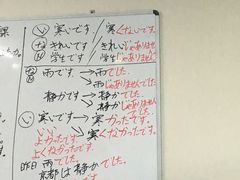 い 寒いです / 寒くないです。
な きれいです / きれいじゃありません
N 学生です / 学生じゃありません
な
N 雨です → 雨でした。
→ 雨じゃありませんでした
静かです → 静かでした。
→ 静かじゃありませんでした
い 寒いです → 寒かったです。
いい → 寒くなかったです。
よかったです。
よくなかったです。
昨日 雨でした。
京都は静かでした。